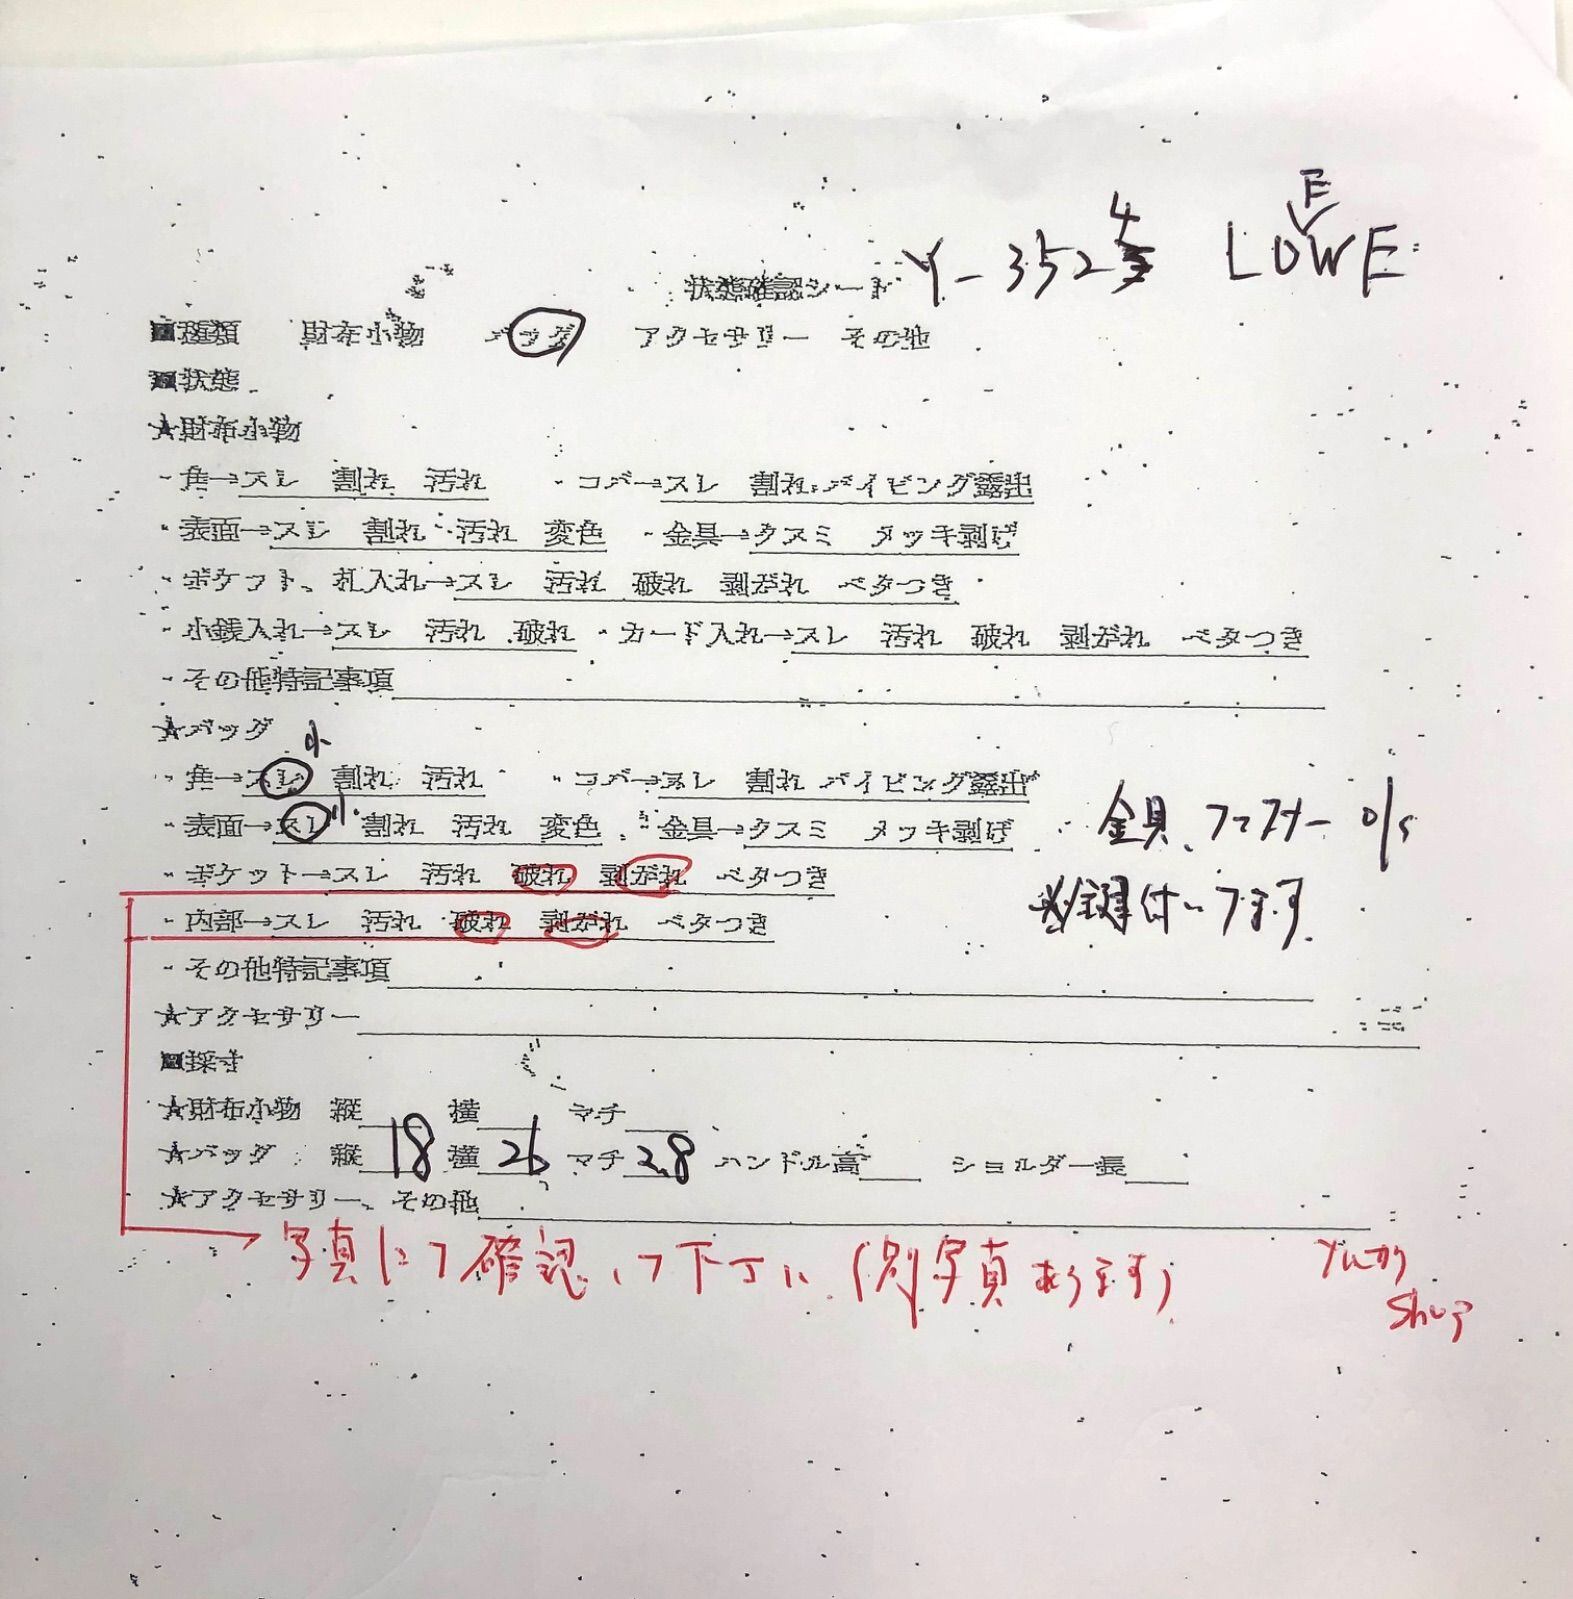 Y-3524 LOEWE
状態確認シート
■種類 財布小物 バッグ アクセサリー その他
■状態
★財布小物
・角→スレ 割れ 汚れ ・コバ→スレ 割れ パイピング露出
・表面→スレ 割れ 汚れ 変色 ・金具→クスミ メッキ剥げ
・ポケット、札入れ→スレ 汚れ 破れ 剥がれ ベタつき
・小銭入れ→スレ 汚れ 破れ ・カード入れ→スレ 汚れ 破れ 剥がれ ベタつき
・その他特記事項
★バッグ
小
・角→スレ 割れ 汚れ ・コバ→スレ 割れ パイピング露出
・表面→スレ 小 割れ 汚れ 変色 ・金具→クスミ メッキ剥げ
金具、ファスナー
・ポケット→スレ 汚れ 破れ 剥がれ ベタつき
※鍵付いてます
・内部→スレ 汚れ 破れ 剥がれ ベタつき
・その他特記事項
★アクセサリー
■採寸
★財布小物 縦 横 マチ
★バッグ 縦 18 横 26 マチ 2.8 ハンドル高 ショルダー長
★アクセサリー、その他
写真にて確認して下さい (別写真あります)